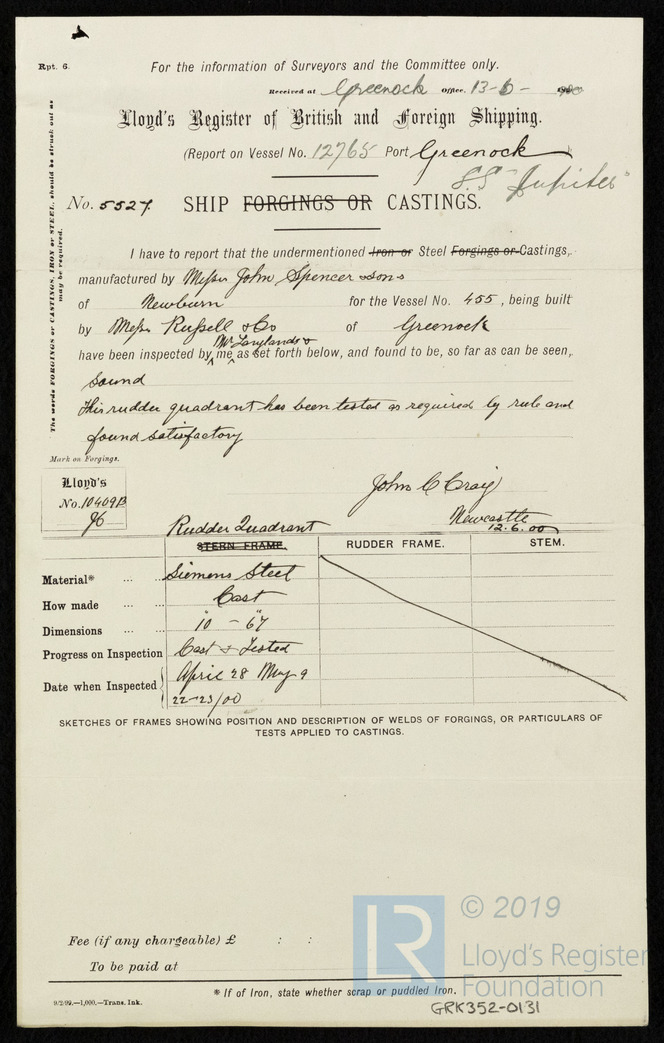 Rpt. 6.
For the information of Surveyors and the Committee only.
Received at Greenock Office. 13-6- 1900
Lloyd's Register of British and Foreign Shipping.
(Report on Vessel No. 12765 Port Greenock
S.S "Jupiter"
No. 5527. SHIP FORGINGS OR CASTINGS.
The words FORGINGS or CASTINGS, IRON or STEEL, should be struck out as may be required.
I have to report that the undermentioned Iron or Steel Forgings or Castings,
manufactured by Messrs John Spencer & Sons
of Newburn for the Vessel No. 455, being built
by Messrs Russell & Co of Greenock
Mr Langlands &
have been inspected by me as set forth below, and found to be, so far as can be seen,
sound
This rudder quadrant has been tested as required by rule and
found satisfactory
Mark on Forgings.
Lloyd's
No. 10409B
John C Craig
Newcastle
12.6.00
Rudder Quadrant
STERN FRAME. RUDDER FRAME. STEM.
Material* ... ... Siemens Steel
How made ... ... Cast
Dimensions ... ... 10" - 6¼"
Progress on Inspection Cast & Tested
Date when Inspected April 28 May 9
22-23/00
SKETCHES OF FRAMES SHOWING POSITION AND DESCRIPTION OF WELDS OF FORGINGS, OR PARTICULARS OF
TESTS APPLIED TO CASTINGS.
Fee (if any chargeable) £ : :
To be paid at
* If of Iron, state whether scrap or puddled Iron.
9/2/99.—1,000.—Trans. Ink.
LR
© 2019
Lloyd's Register
Foundation
GRK352-0131